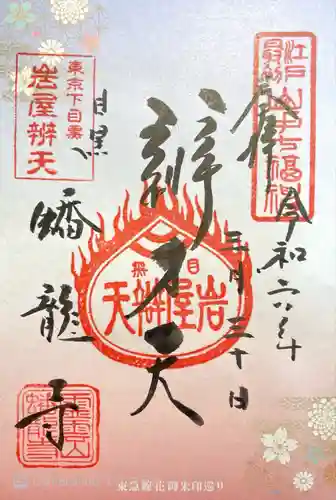 奉拝
江戸最初
山手七福神
令和六年
三月三十日
辨才天
目黒
岩屋辨天
東京下目黒
岩屋辨天
目黒
蟠龍寺
東急線花御朱印巡り